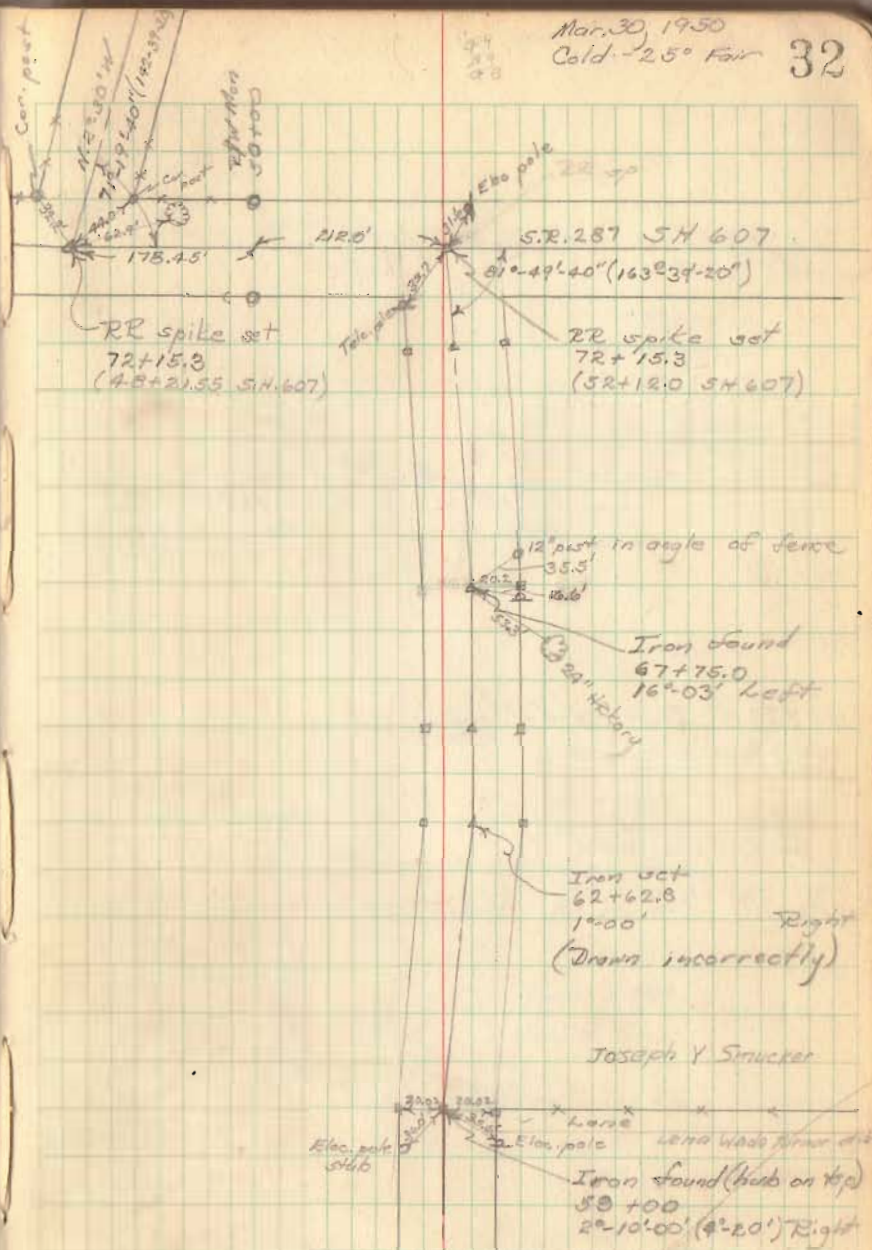 Mar. 30, 1950
Cold - 25° Fair
32
Cor. post
N-2°-30' W
71°-19'-40" (142-39-20)
R/W Mon
50+00
Cor post
39.2'
44.0'
62.9'
178.45'
212.0'
Elec pole
S.R. 287 SH 607
81°-49'-40" (163°-39'-20")
33.2
Tele. pole
RR spike set
72+15.3
(48+21.55 S.H. 607)
RR spike set
72+15.3
(52+12.0 SH 607)
12" post in angle of fence
35.5'
20.2
53.3'
24" Hickory
Iron found
67+75.0
16°-03' Left
Iron set
62+62.8
1°-00' Right
(Drawn incorrectly)
Joseph Y Smucker
30.02 30.02
Lane
Elec. pole stub
Elec. pole
Iron found (hub on top)
59+00
2°-10'-00' (4°-20') Right